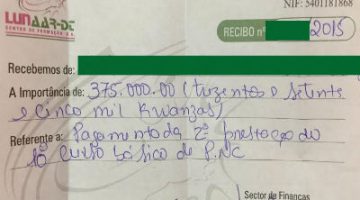 LUNAAR-DC
CENTRO DE FORMAÇÃO
NIF: 5401181868
RECIBO nº 2015
Recebemos de:
A Importância de: 375.000.00 (trezentos e setente
e cinco mil Kwanzas)
Referente a: Pagamento da 2ª prestação do
curso básico de PNC
Sector de Finanças